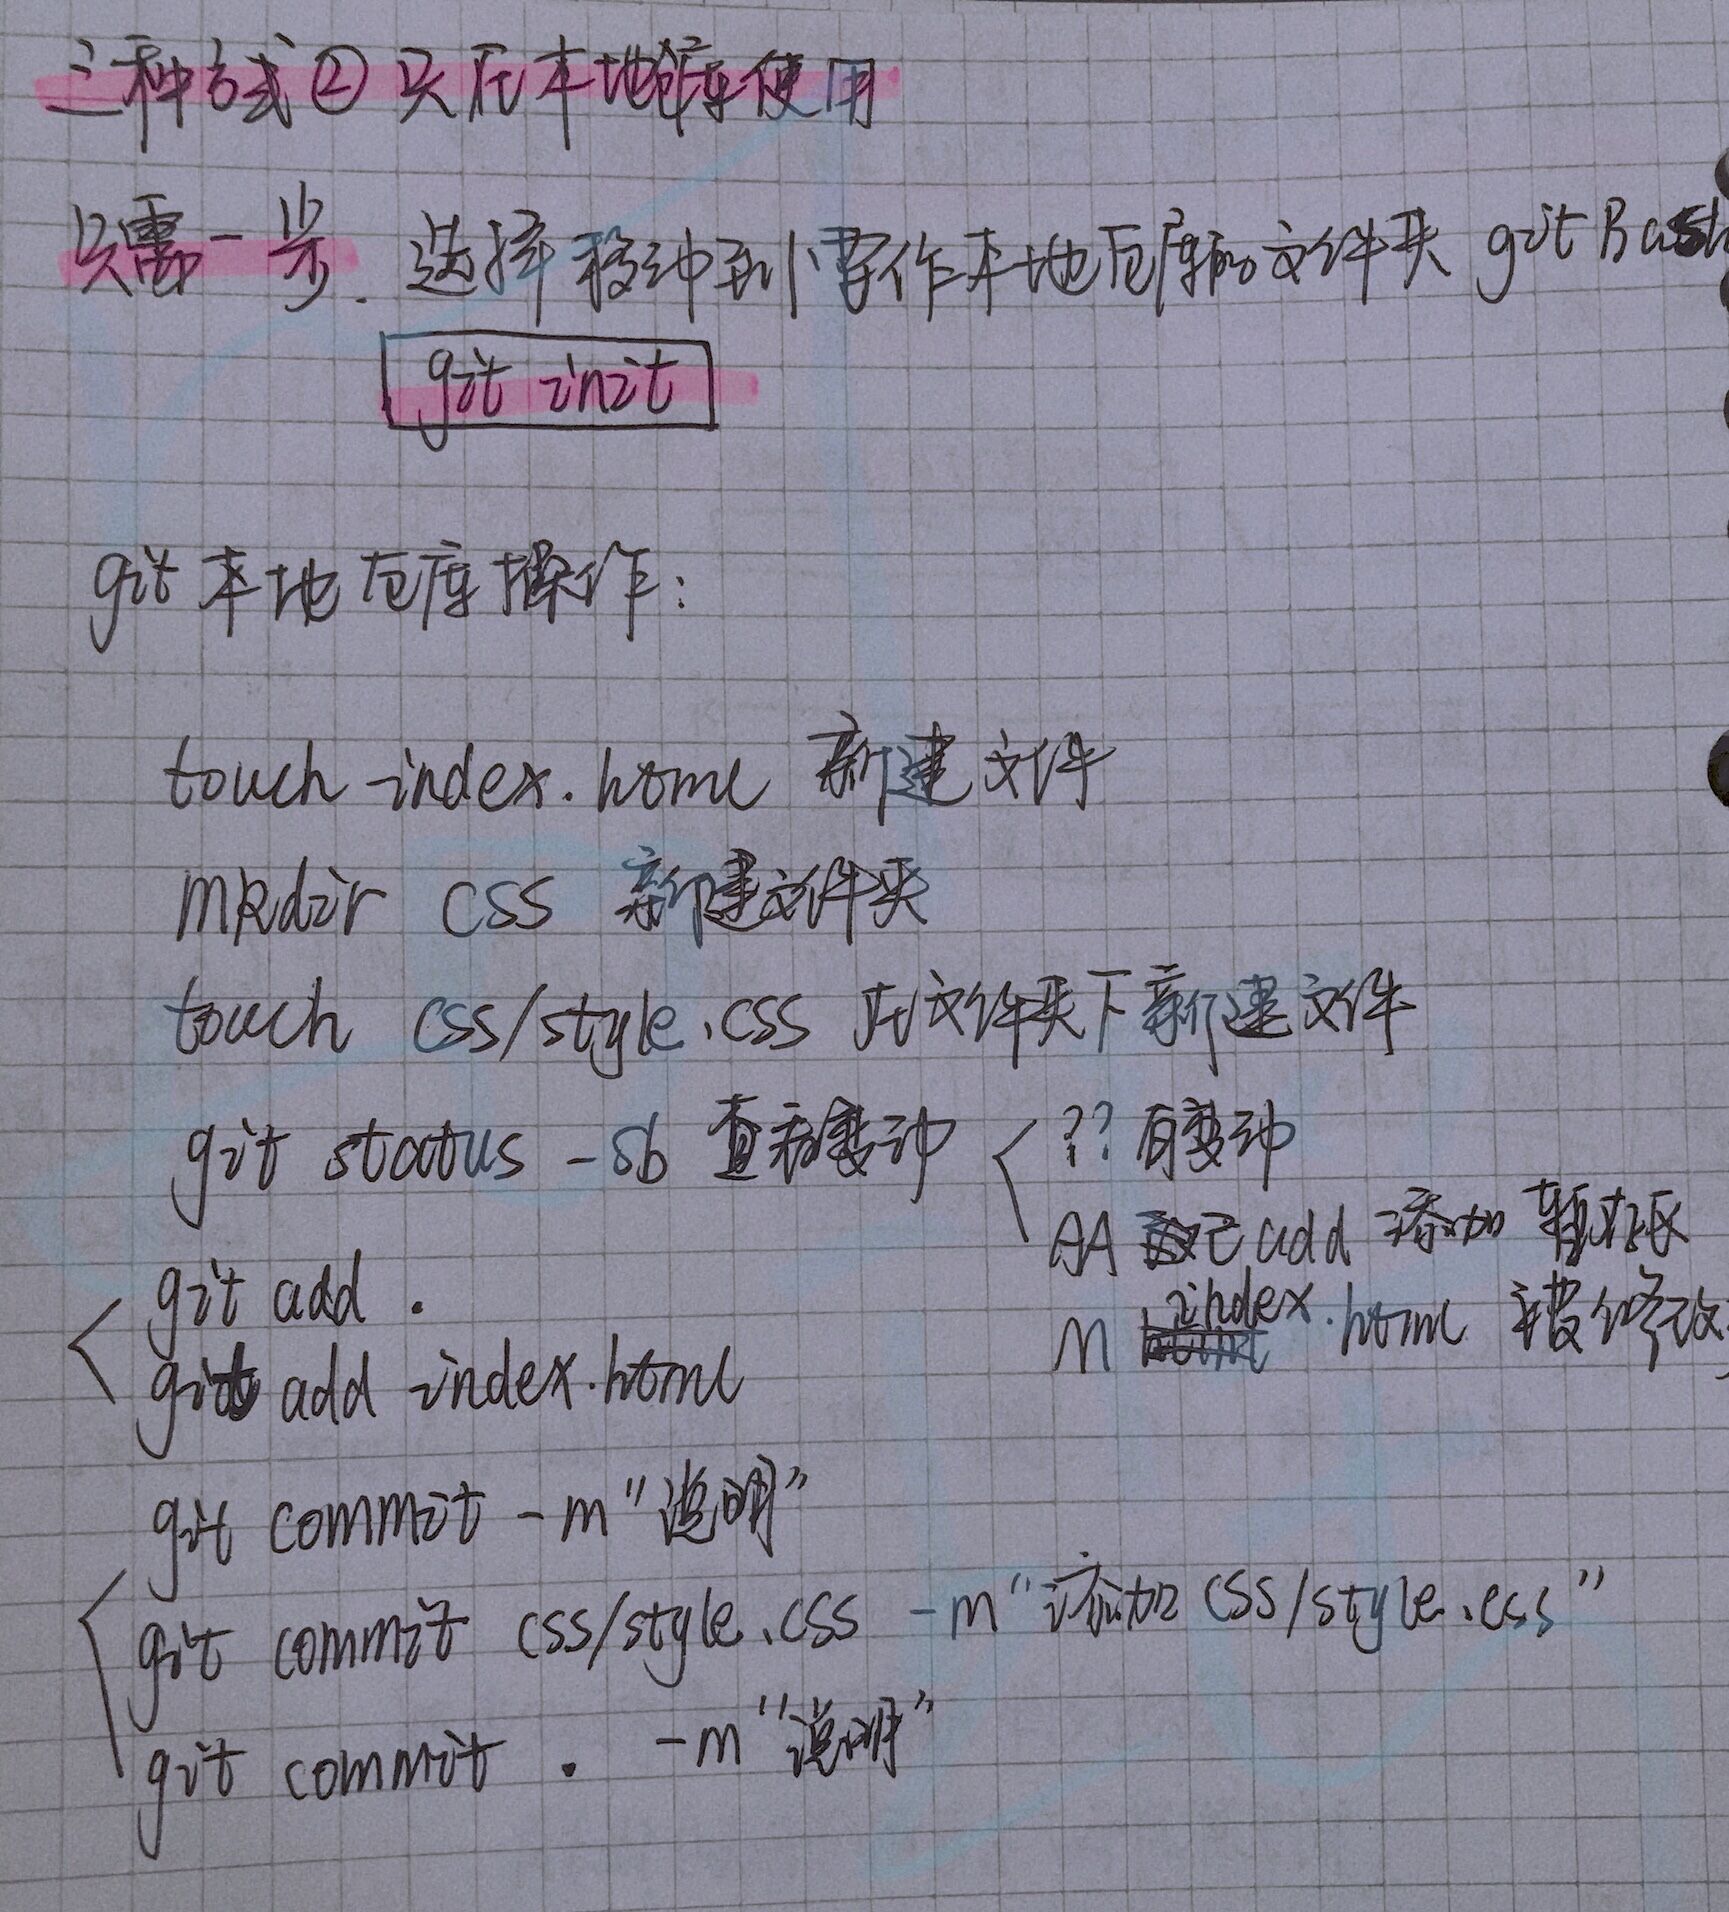 三种方式② 只在本地库使用
只需一步. 选择移动到你要作本地仓库的文件夹 git Bash
git init
git 本地仓库操作:
touch index.html 新建文件
mkdir css 新建文件夹
touch css/style.css 在文件夹下新建文件
git status -sb 查看变动
?? 有变动
AA 已 add 添加 暂存区
M index.html 被修改
git add .
git add index.html
git commit -m "说明"
git commit css/style.css -m "添加 css/style.css"
git commit . -m "说明"